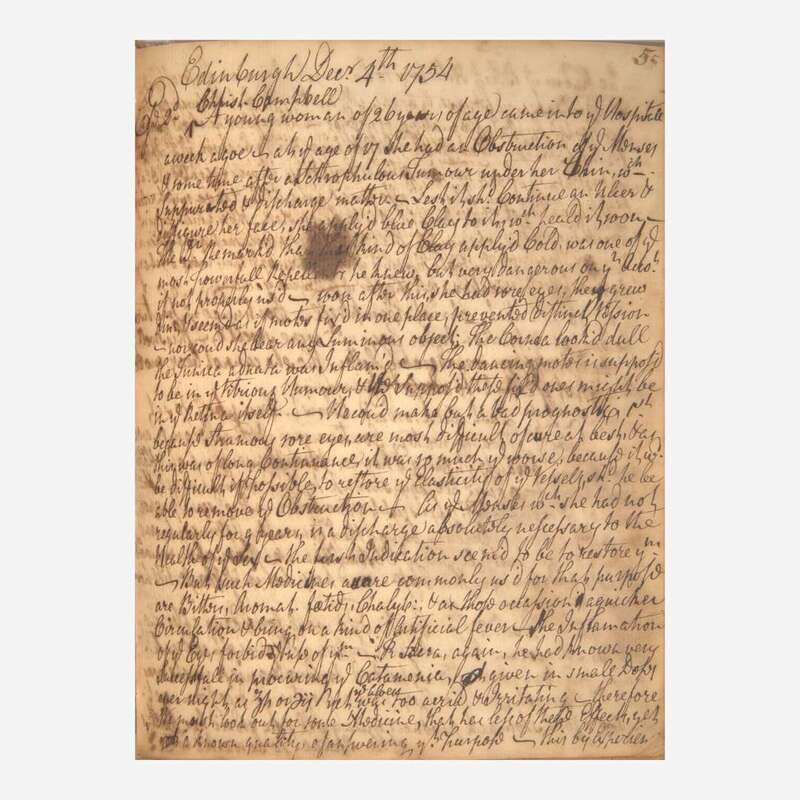 5
Edinburgh Decr. 4.th 1754
Christ. Campbell
A young woman of 26 years of age came into ye Hospitale
a week agoe at ye age of 17 she had an Obstruction of ye Menses
& some time after a Schrophulous Tumour under her Chin, wch.
Suppurated & discharge matter Lest it shd. Continue an Ulcer &
disfigure her face, she apply'd blue Clay to it, wch. heal'd it soon
The Dr. Remarkd that this kind of Clay apply'd Cold, was one of ye
most powerfull Repellents he knew, but very dangerous on yt. Acct.
if not properly us'd soon after this, she had sore eyes, they grew
dim, & seem'd as if motes fix'd in one place, prevented distinct Vission
nor could she bear any Luminous object; The Cornea look'd dull
the Tunica adnata was Inflam'd The dancing motes is suppos'd
to be in ye Vitrious Humour, & suppos'd these fix'd ones might be
in ye Retina itself He could make but a bad prognostic, 1st.
because Strumous sore eyes are most difficult of cure at best, & as
this was of long Continuance, it was so much ye worse, because it wd.
be difficult if possible, to restore ye Elasticity of ye Vessels, shd. he be
able to remove ye Obstruction ye Menses wch. she had not
regularly for 9 years, is a discharge absolutely necessary to the
Health of ye Sex the first Indication seem'd to be to restore ym.
But such Medicines as are commonly us'd for that purpose
are Bitters, Aromat. foetids, Chalyb:, & as those occassion a quicker
Circulation & bring on a kind of Artificial fever the Inflamation
of ye Eyes forbids use of ym. again, he had known very
in procuring ye Catamenia, given in small Doses
every night, as or but was too acrid & Irritating Therefore
he must look out for some Medicine, that has less of these Effects, yet
a known quality of answering ye Purpose this by Experien